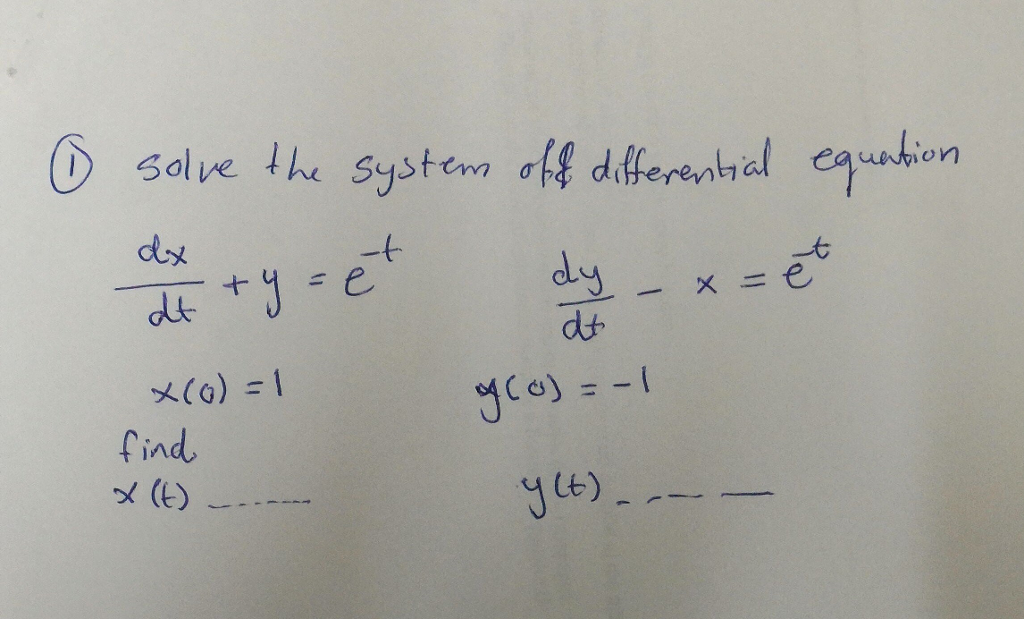 ① solve the system of differential equation
dx/dt + y = e^-t dy/dt - x = e^-t
x(0) = 1 y(0) = -1
find
x(t) ------- y(t) -----